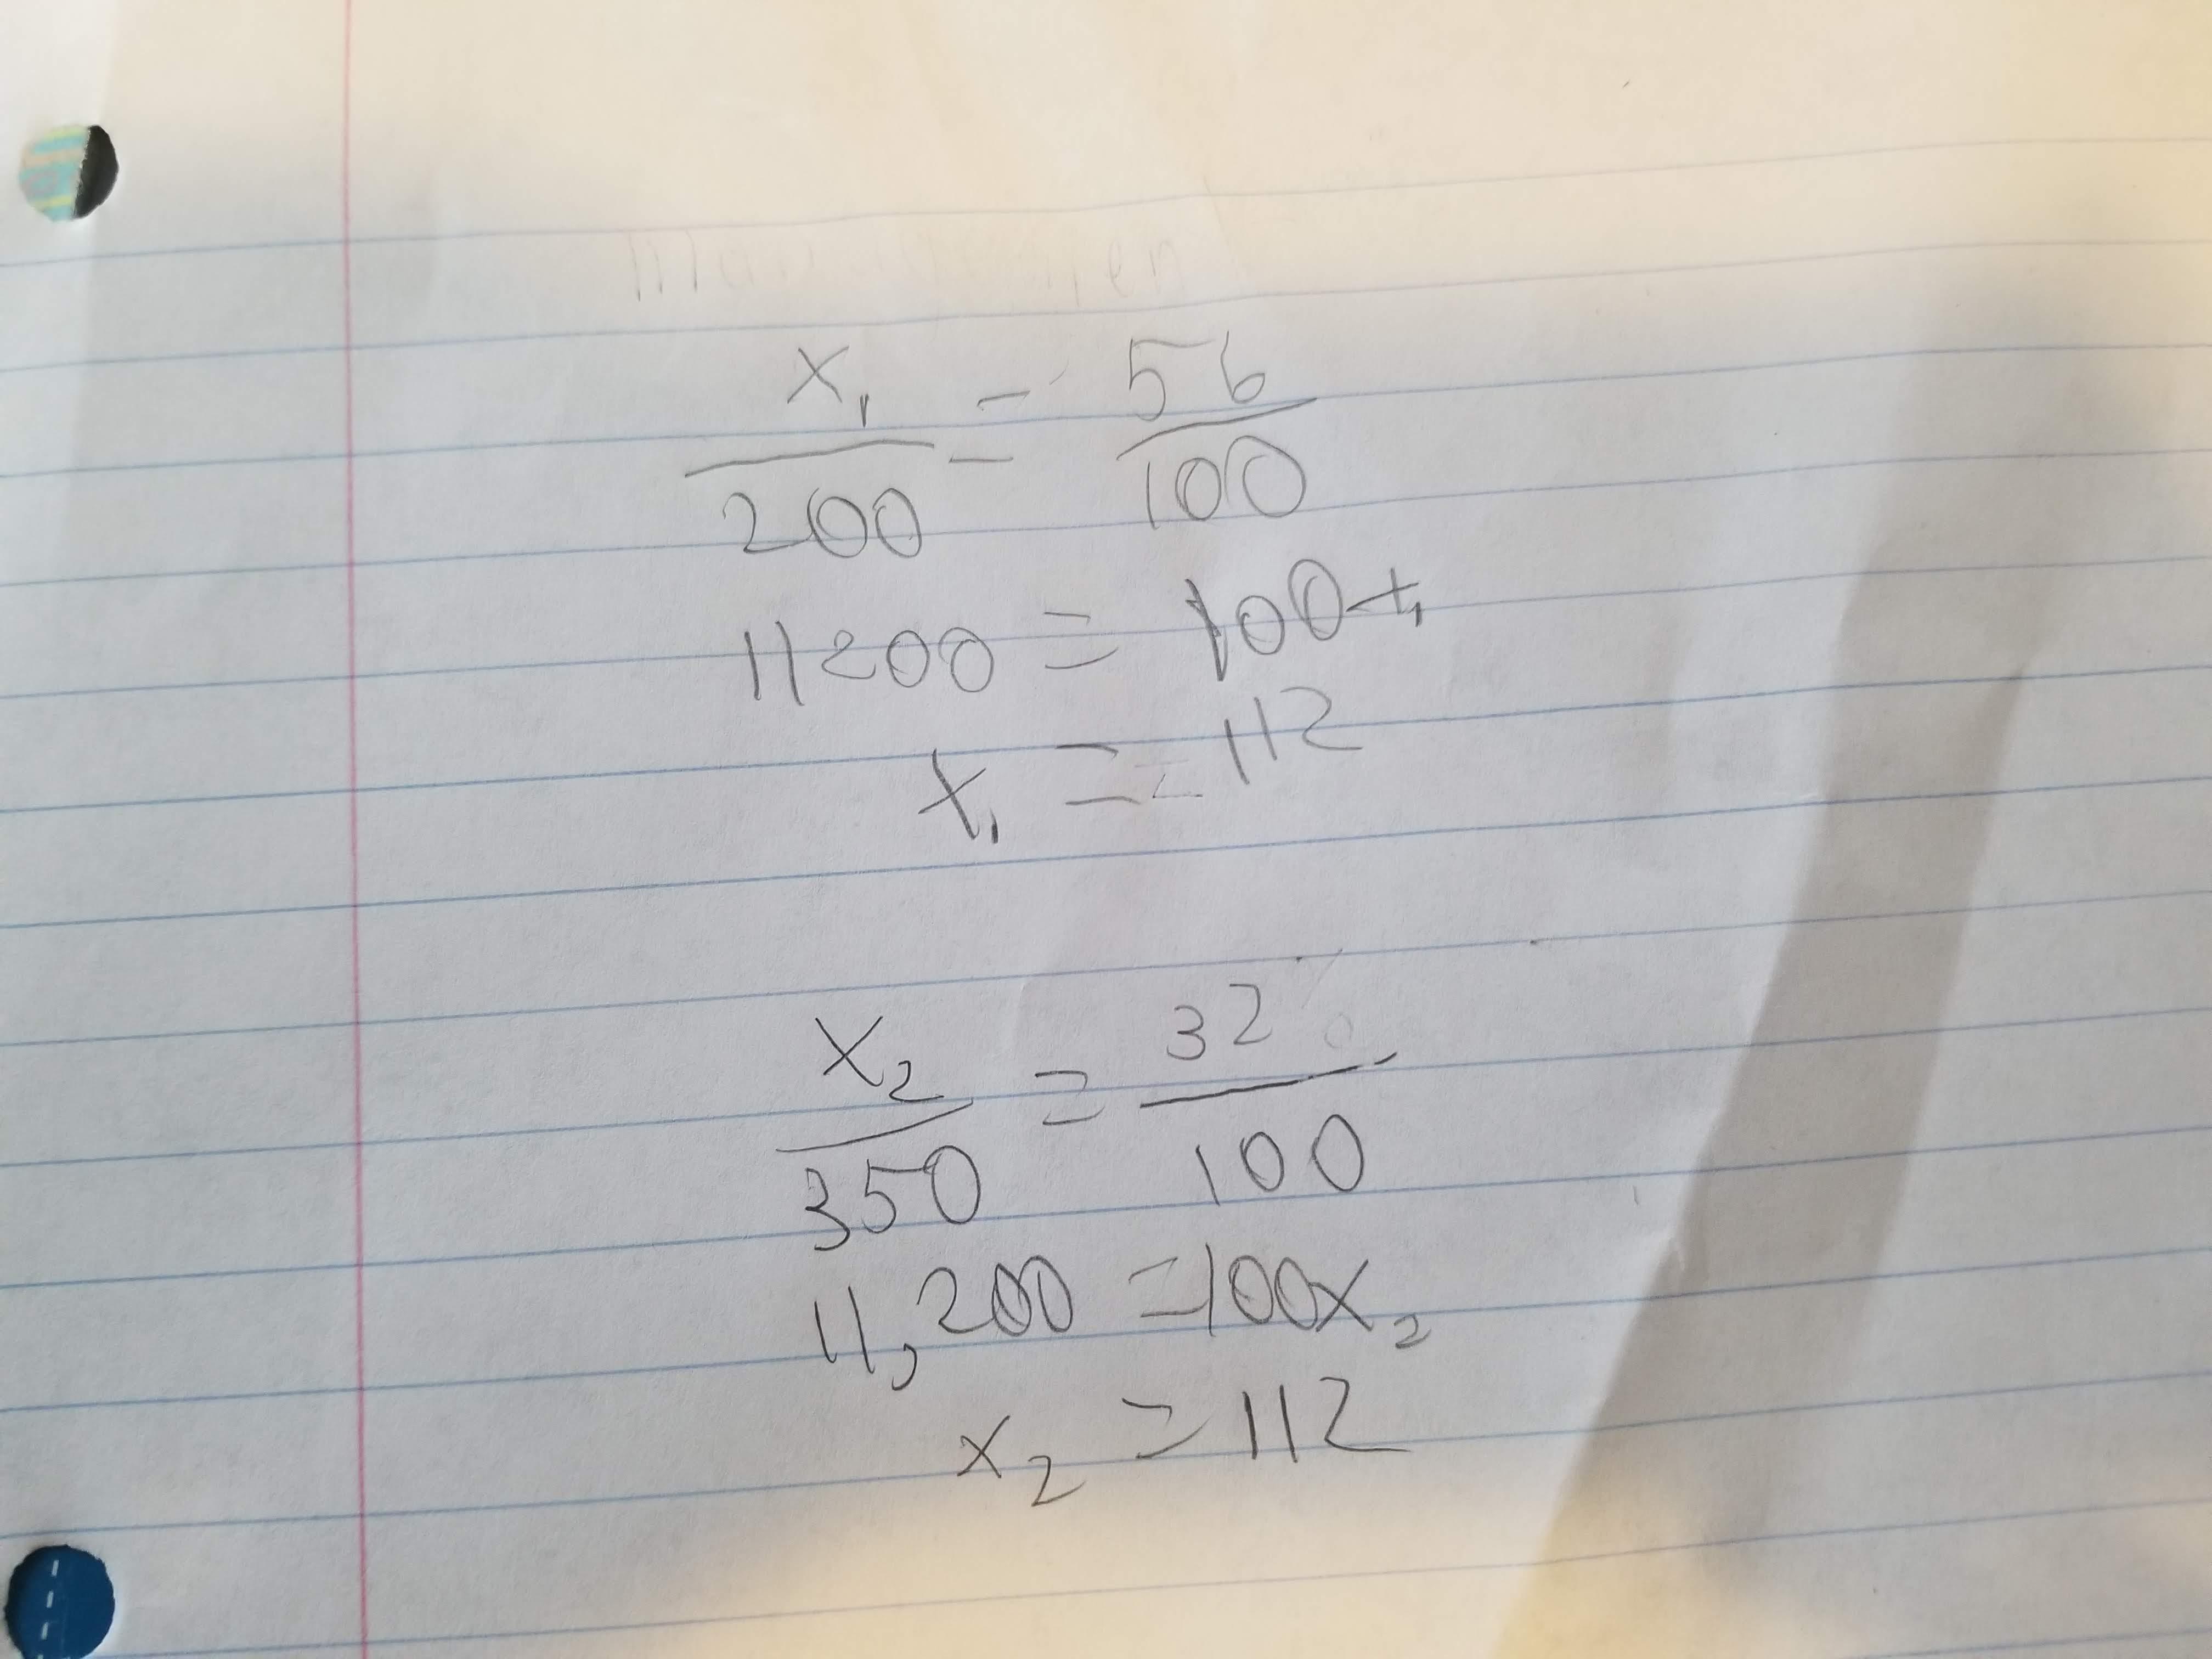 x₁/200 = 56/100
11200 = 100x₁
x₁ = 112
x₂/350 = 32%/100
11,200 = 100x₂
x₂ = 112